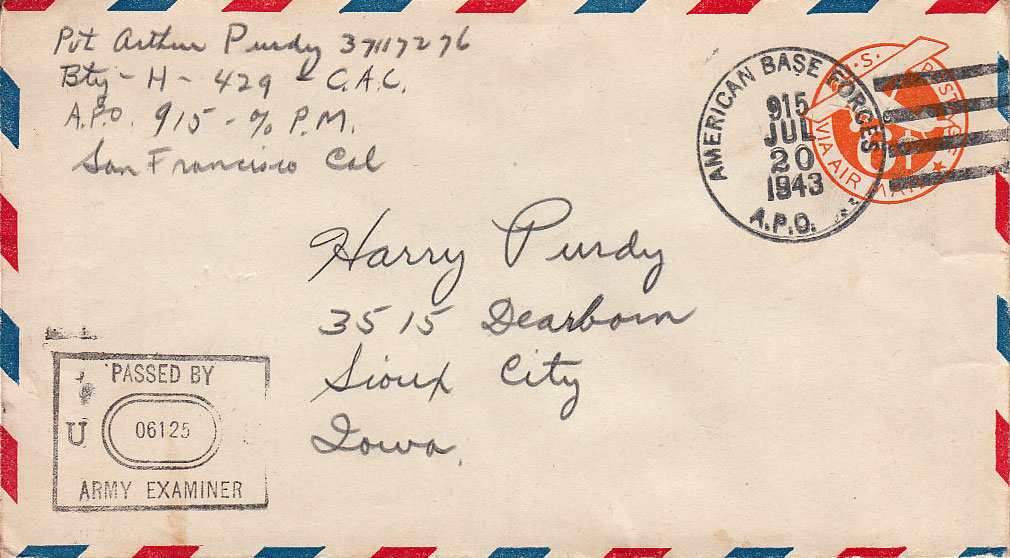 Pvt Arthur Purdy 37117276
Bty - H - 429 - C.A.C.
A.P.O. 915 - % P.M.
San Francisco Cal
AMERICAN BASE FORCES
915
JUL
20
1943
A.P.O.
.S. POSTAGE
VIA AIR MAIL
Harry Purdy
3515 Dearborn
Sioux City
Iowa.
PASSED BY
U
06125
ARMY EXAMINER